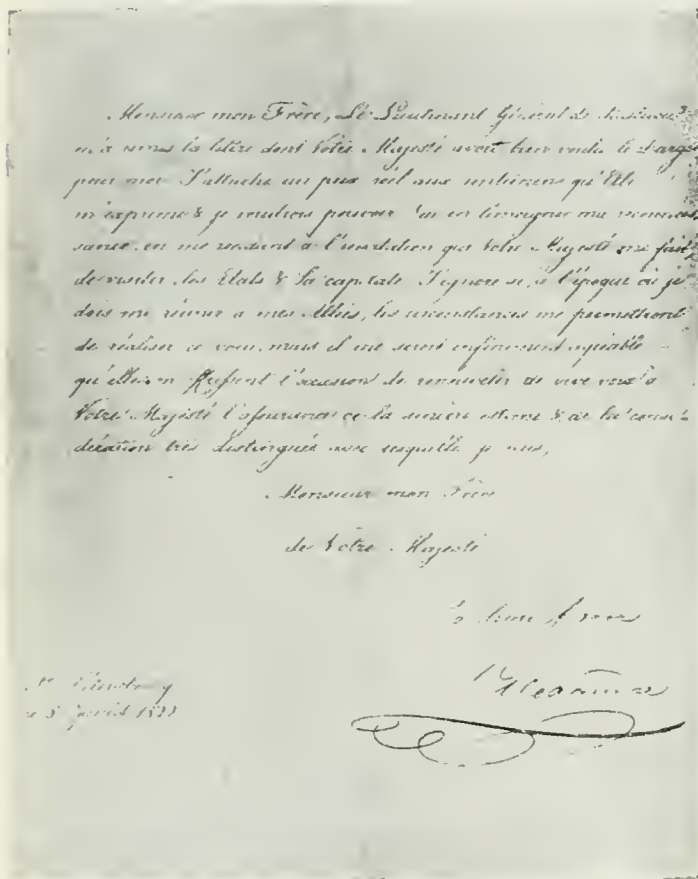 Monsieur mon Frère, Le Lieutenant Général de
m'a remis la lettre dont Votre Majesté avoit bien voulu le charger
pour moi. J'attache un prix réel aux sentimens qu'Elle
m'exprime & je voudrois pouvoir Lui en témoigner ma reconnois-
sance, en me rendant à l'invitation que Votre Majesté me fait
de visiter Ses Etats & Sa capitale. J'ignore si, à l'époque où je
dois me réunir à mes Alliés, les circonstances me permettront
de réaliser ce voeu, mais il me seroit infiniment agréable
qu'elles m'offrissent l'occasion de renouveler de vive voix à
Votre Majesté l'assurance de la sincère estime & de la consi-
dération très distinguée avec laquelle je suis,
Monsieur mon Frère
de Votre Majesté
le bon frère
Alexandre
St. Pétersbourg